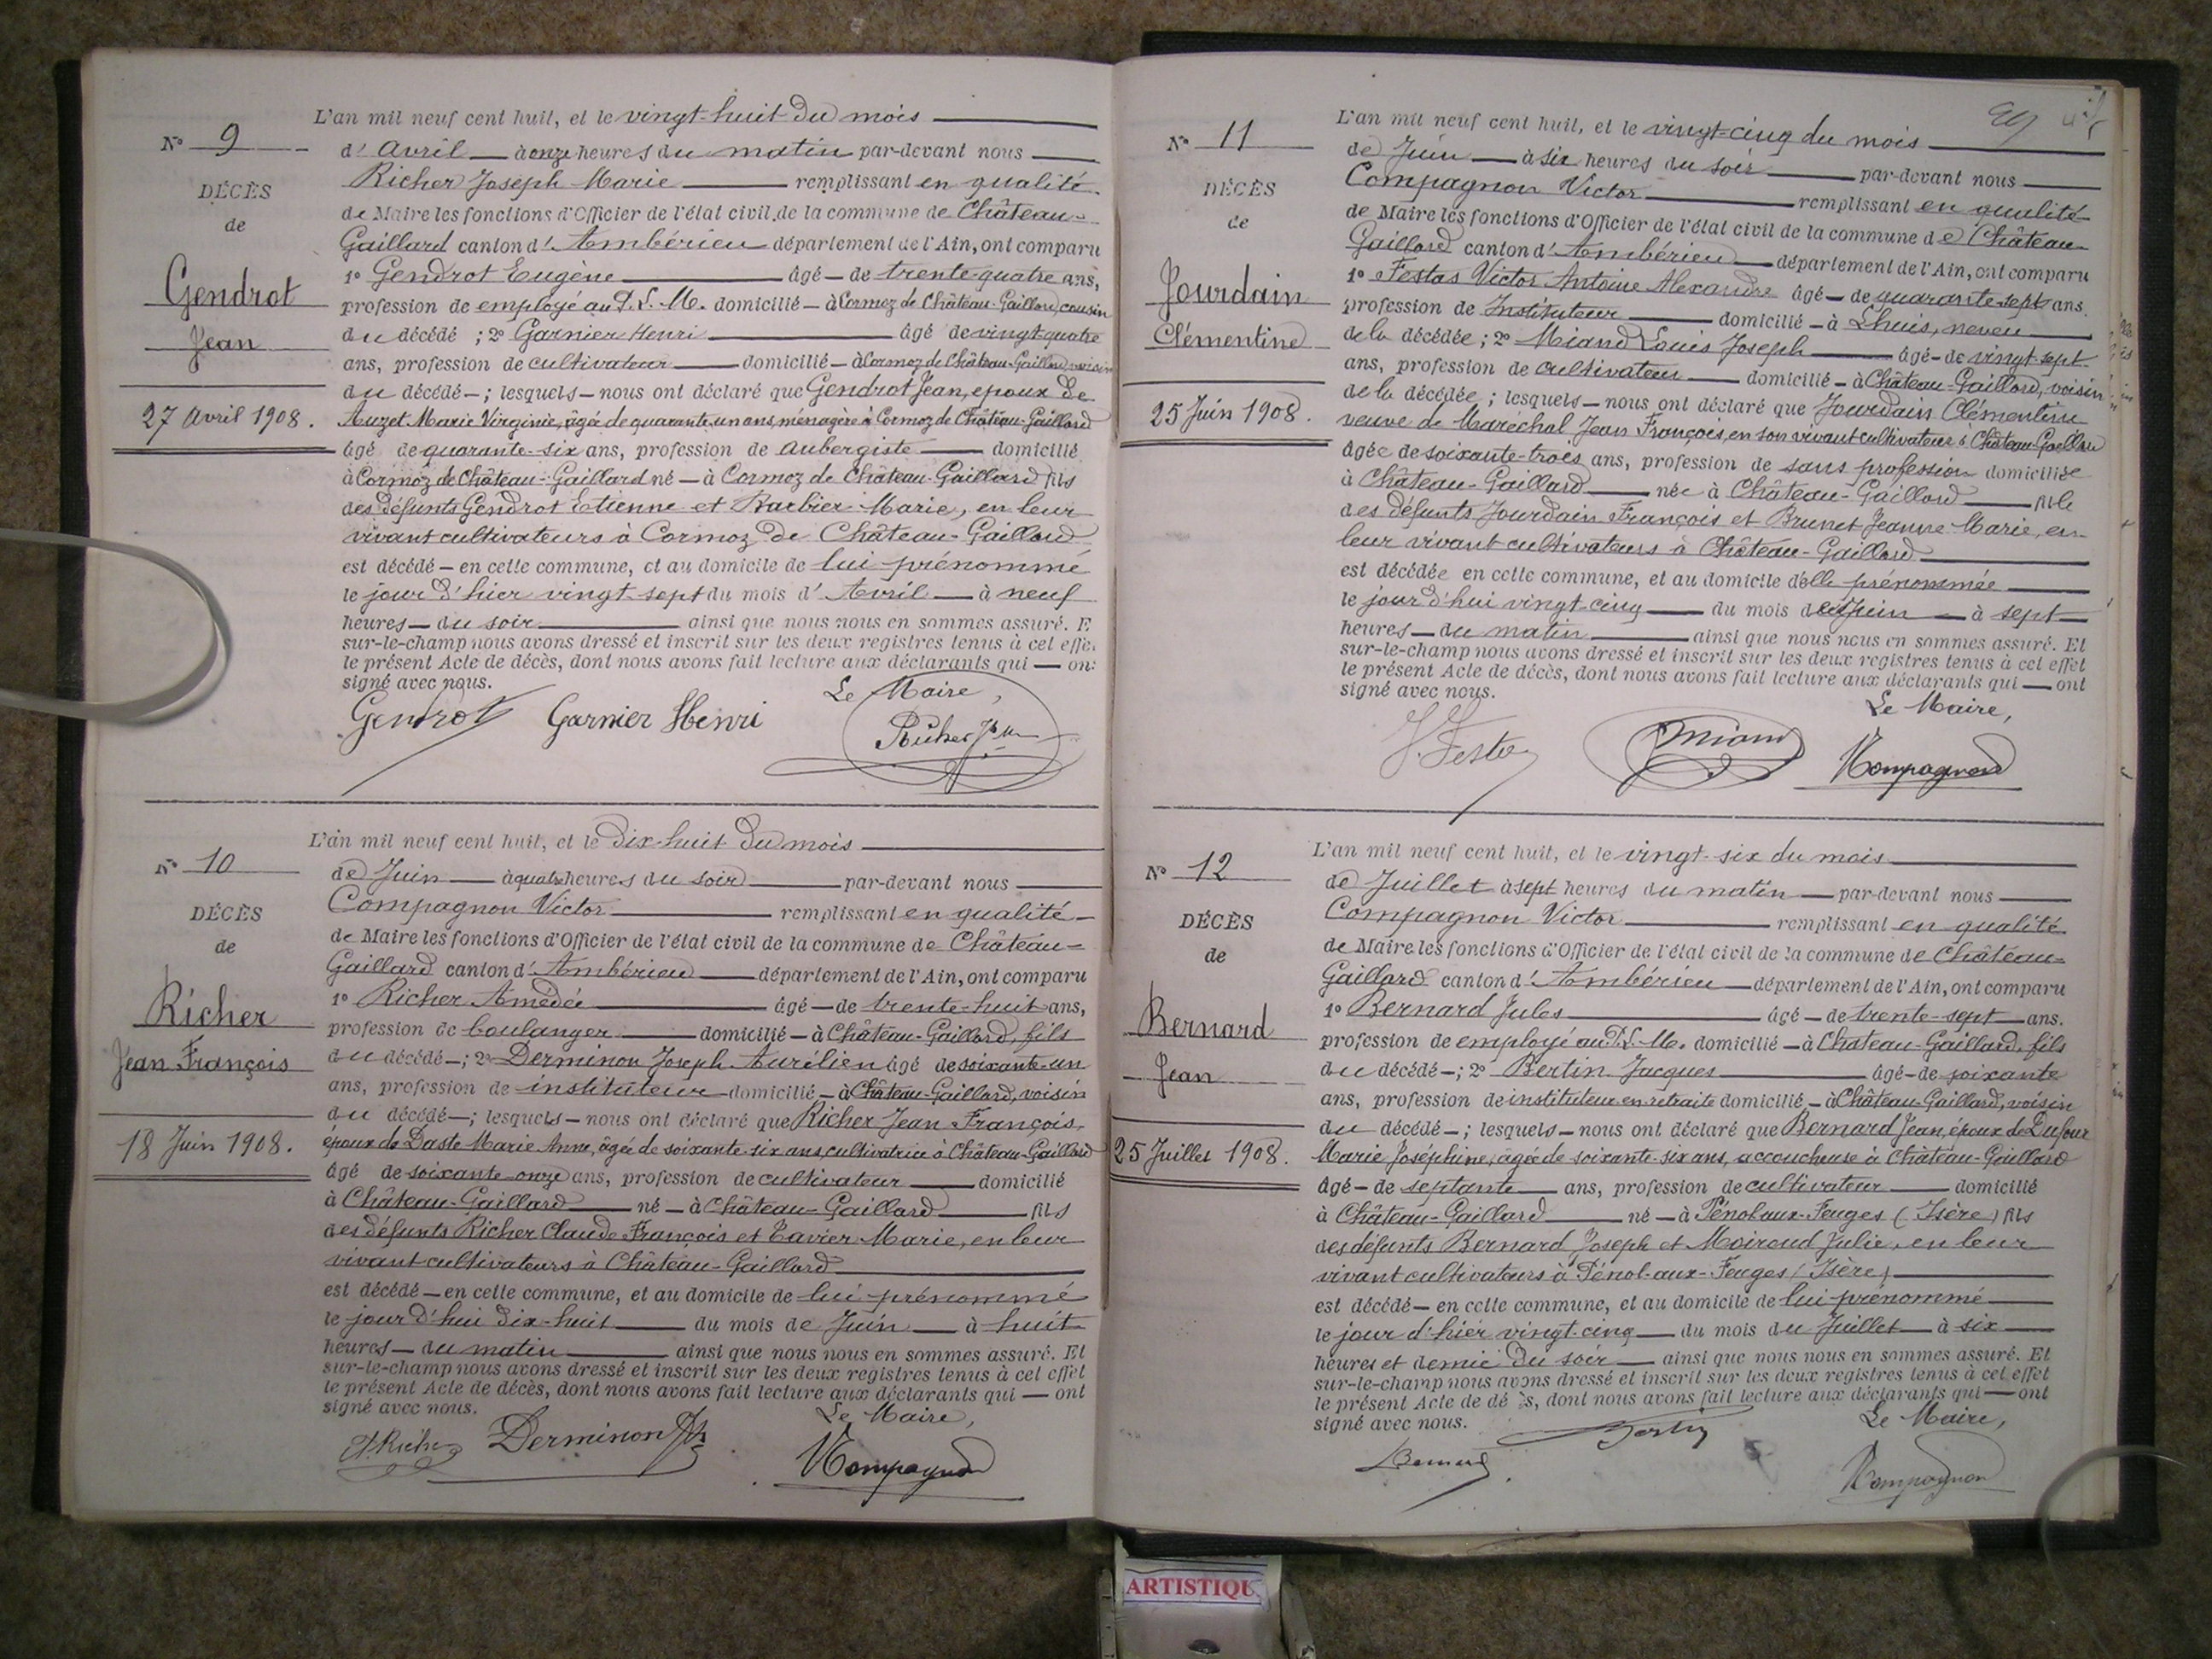 L'an mil neuf cent huit, et le vingt-huit du mois
N° 9
d'Avril à onze heures du matin par-devant nous
Richer Joseph Marie remplissant en qualité
DÉCÈS
de Maire les fonctions d'Officier de l'état civil de la commune de Château-
de
Gaillard canton d'Ambérieu département de l'Ain, ont comparu
Gendrot
1° Gendrot Eugène âgé de trente-quatre ans,
profession de employé au P. L. M. domicilié à Cormoz de Château-Gaillard, cousin
Jean
du décédé ; 2° Garnier Henri âgé de vingt-quatre
ans, profession de cultivateur domicilié à Cormoz de Château-Gaillard, voisin
du décédé ; lesquels nous ont déclaré que Gendrot Jean, époux de
27 Avril 1908.
Auzet Marie Virginie, âgée de quarante-un ans, ménagère à Cormoz de Château-Gaillard
âgé de quarante-six ans, profession de aubergiste domicilié
à Cormoz de Château-Gaillard né à Cormoz de Château-Gaillard fils
des défunts Gendrot Etienne et Barbier Marie, en leur
vivant cultivateurs à Cormoz de Château-Gaillard
est décédé en cette commune, et au domicile de lui prénommé
le jour d'hier vingt-sept du mois d'Avril à neuf
heures du soir ainsi que nous nous en sommes assuré. E
sur-le-champ nous avons dressé et inscrit sur les deux registres tenus à cet effe
le présent Acte de décès, dont nous avons fait lecture aux déclarants qui on
signé avec nous. Le Maire,
Gendrot Garnier Henri Richer Jph M
L'an mil neuf cent huit, et le dix-huit du mois
N° 10
de Juin à quatre heures du soir par-devant nous
Compagnon Victor remplissant en qualité
DÉCÈS
de Maire les fonctions d'Officier de l'état civil de la commune de Château-
de
Gaillard canton d'Ambérieu département de l'Ain, ont comparu
Richer
1° Richer Amédée âgé de trente-huit ans,
profession de boulanger domicilié à Château-Gaillard, fils
Jean François
du décédé ; 2° Derminon Joseph Aurélien âgé de soixante-un
ans, profession de instituteur domicilié à Château-Gaillard, voisin
du décédé ; lesquels nous ont déclaré que Richer Jean François,
18 Juin 1908.
époux de Daste Marie Anne, âgée de soixante-six ans, cultivatrice à Château-Gaillard
âgé de soixante-onze ans, profession de cultivateur domicilié
à Château-Gaillard né à Château-Gaillard fils
des défunts Richer Claude François et Tavier Marie, en leur
vivant cultivateurs à Château-Gaillard
est décédé en cette commune, et au domicile de lui prénommé
le jour d'hui dix-huit du mois de Juin à huit
heures du matin ainsi que nous nous en sommes assuré. Et
sur-le-champ nous avons dressé et inscrit sur les deux registres tenus à cet effet
le présent Acte de décès, dont nous avons fait lecture aux déclarants qui ont
signé avec nous. Le Maire,
A. Richer Derminon VCompagnon
L'an mil neuf cent huit, et le vingt-cinq du mois
N° 11
de Juin à six heures du soir par-devant nous
Compagnon Victor remplissant en qualité
DÉCÈS
de Maire les fonctions d'Officier de l'état civil de la commune de Château-
de
Gaillard canton d'Ambérieu département de l'Ain, ont comparu
Jourdain
1° Festas Victor Antoine Alexandre âgé de quarante-sept ans.
profession de Instituteur domicilié à Lhuis, neveu
Clémentine
de la décédée ; 2° Miand Louis Joseph âgé de vingt-sept
ans, profession de cultivateur domicilié à Château-Gaillard, voisin
de la décédée ; lesquels nous ont déclaré que Jourdain Clémentine
25 Juin 1908.
veuve de Maréchal Jean François, en son vivant cultivateur à Château-Gaillard
âgée de soixante-trois ans, profession de sans profession domiciliée
à Château-Gaillard née à Château-Gaillard fille
des défunts Jourdain François et Brunet Jeanne Marie, en
leur vivant cultivateurs à Château-Gaillard
est décédée en cette commune, et au domicile d'elle prénommée
le jour d'hui vingt-cinq du mois de Juin à sept
heures du matin ainsi que nous nous en sommes assuré. Et
sur-le-champ nous avons dressé et inscrit sur les deux registres tenus à cet effet
le présent Acte de décès, dont nous avons fait lecture aux déclarants qui ont
signé avec nous. Le Maire,
Miand VCompagnon
L'an mil neuf cent huit, et le vingt-six du mois
N° 12
de Juillet à sept heures du matin par-devant nous
Compagnon Victor remplissant en qualité
DÉCÈS
de Maire les fonctions d'Officier de l'état civil de la commune de Château-
de
Gaillard canton d'Ambérieu département de l'Ain, ont comparu
Bernard
1° Bernard Jules âgé de trente-sept ans.
profession de employé au P. L. M. domicilié à Château-Gaillard, fils
Jean
du décédé ; 2° Bertin Jacques âgé de soixante
ans, profession de instituteur en retraite domicilié à Château-Gaillard, voisin
du décédé ; lesquels nous ont déclaré que Bernard Jean, époux de Dufour
25 Juillet 1908.
Marie Joséphine, âgée de soixante-six ans, accoucheuse à Château-Gaillard
âgé de septante ans, profession de cultivateur domicilié
à Château-Gaillard né à Pénol-aux-Feuges (Isère) fils
des défunts Bernard Joseph et Moiroud Julie, en leur
vivant cultivateurs à Pénol-aux-Feuges (Isère)
est décédé en cette commune, et au domicile de lui prénommé
le jour d'hier vingt-cinq du mois du Juillet à six
heures et demie du soir ainsi que nous nous en sommes assuré. Et
sur-le-champ nous avons dressé et inscrit sur les deux registres tenus à cet effet
le présent Acte de dé ès, dont nous avons fait lecture aux déclarants qui ont
signé avec nous. Le Maire,
Bernard Bertin VCompagnon
ARTISTIQU